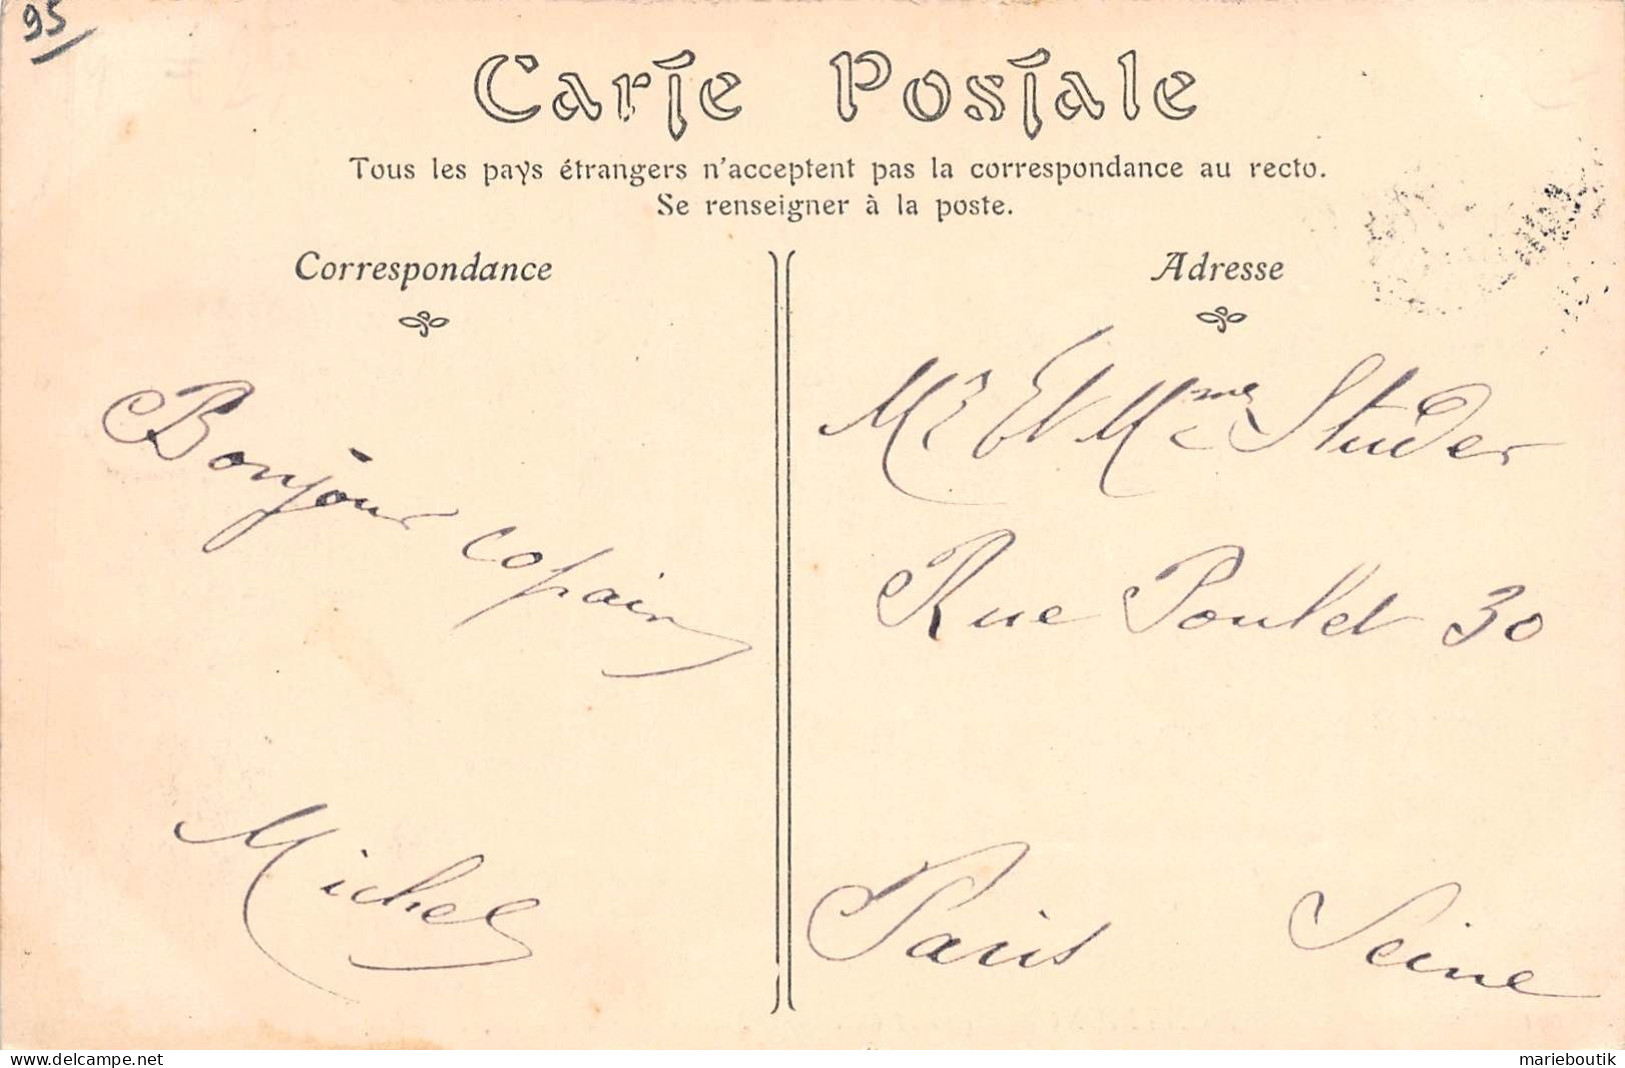 95
Carte Postale
Tous les pays étrangers n'acceptent pas la correspondance au recto.
Se renseigner à la poste.
Correspondance
Adresse
Bonjour copain
Michel
Mr Et Mme Studer
Rue Poulet 30
Paris Seine
delcampe.net
marieboutik